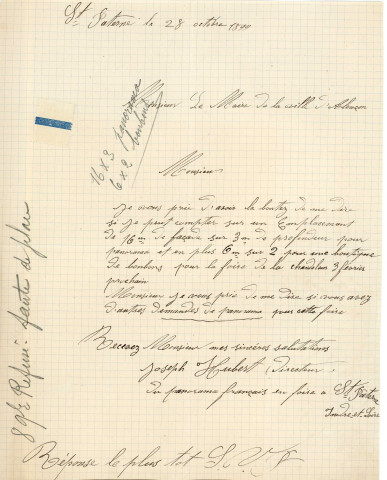 St Paterne le 28 octobre
Monsieur Le Maire de la ville d'Alençon
16 x 3 panorama
6 x 2 bonbons
Monsieur
je vous prie d'avoir la bontez de me dire
si je peut compter sur un Emplacement
de 16m de façade sur 3m de profondeur pour
panorama et en plus 6m sur 2 pour une boutique
de bonbons pour la foire de la chandeleur 3 février
prochain
Monsieur je vous prie de me dire si vous avez
d'autres demandes de panorama pour cette foire
Recevez Monsieur mes sincères salutations
Joseph Hubert directeur
du panorama français en foire a St Paterne
Indre-et-Loire
Réponse le plus tot S. V. P
Refusé. faute de place